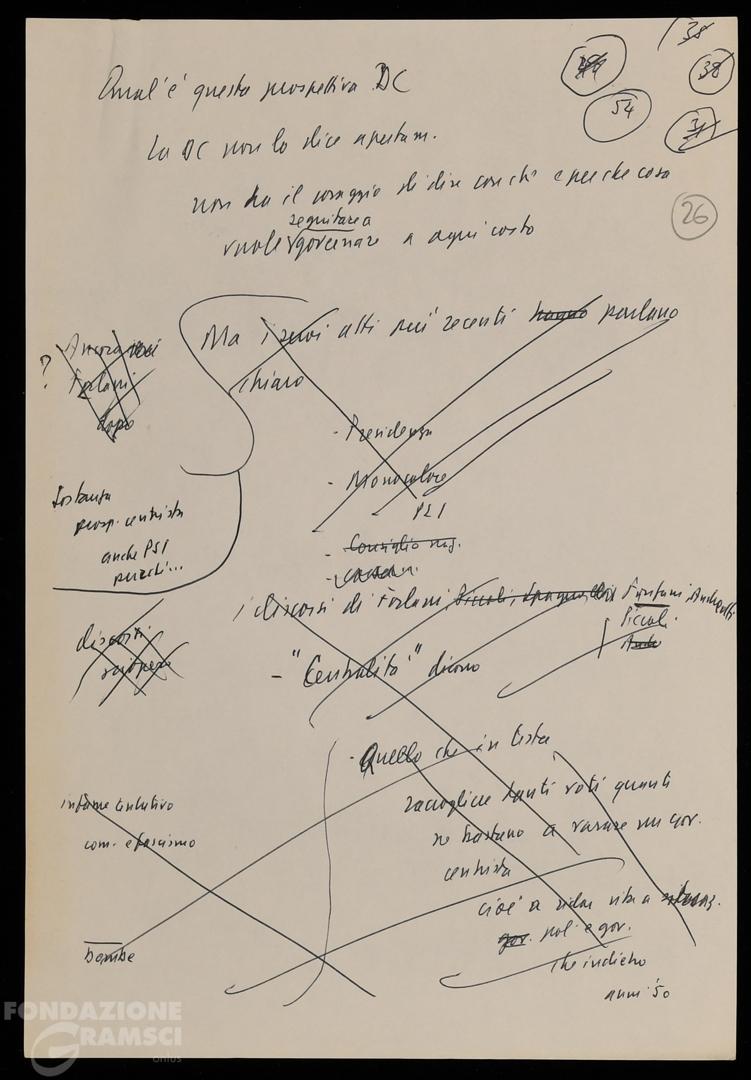 38
38
54
31
26
Qual'è questa prospettiva DC
La DC non lo dice apertam.
non ha il coraggio di dire con chi e per che cosa
seguitare a
vuole governare a ogni costo
Ma i suoi atti più recenti hanno parlano
chiaro
- Presidenza
- Monocolore
PLI
- Consiglio naz.
?
Ancora
Forlani
dopo
Sostanza
prosp. centrista
anche PSI
perché...
i discorsi di Forlani, Piccoli, Fanfani, Andreotti
Piccoli
- "Centralità" dicono
discorsi
- Quello che in testa
raccogliere tanti voti quanti
ne bastano a varare un gov.
centrista
cioè a ridar vita a
gov. pol. e gov.
che indietro
anni '50
infame tentativo
com. e fascismo
bombe
FONDAZIONE
GRAMSCI
onlus